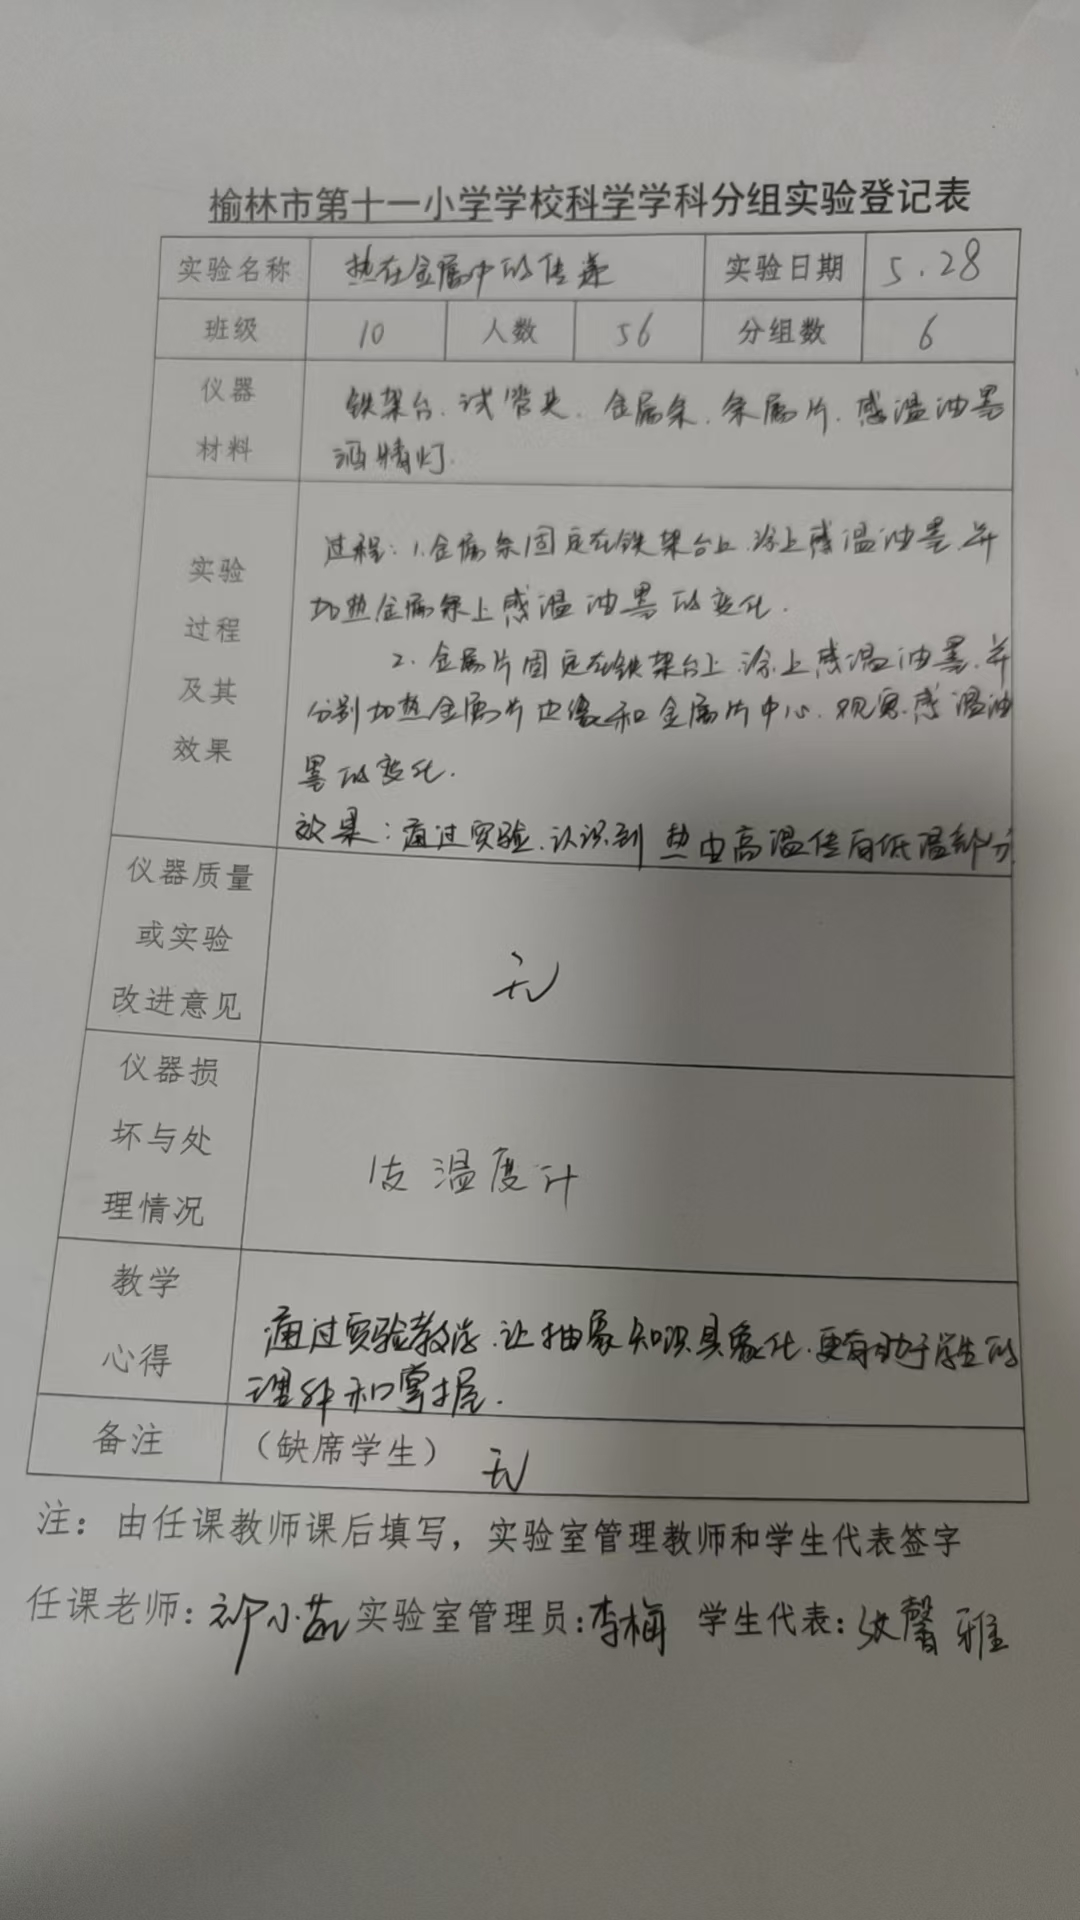 榆林市第十一小学学校科学学科分组实验登记表
实验名称 热在金属中的传递 实验日期 5.28
班级 10 人数 56 分组数 6
仪器材料 铁架台、试管夹、金属条、条属片、感温油墨
酒精灯.
实验过程及其效果
过程：1.金属条固定在铁架台上.涂上感温油墨.并
加热金属条上感温油墨的变化.
2.金属片固定在铁架台上.涂上感温油墨.并
分别加热金属片边缘和金属片中心.观察感温油
墨的变化.
效果：通过实验.认识到热由高温传向低温部分.
仪器质量或实验改进意见 无
仪器损坏与处理情况 1支温度计
教学心得 通过实验教学.让抽象知识具象化.更有助于学生的
理解和掌握.
备注 （缺席学生） 无
注：由任课教师课后填写，实验室管理教师和学生代表签字
任课老师: 小茹 实验室管理员: 李梅 学生代表: 馨雅